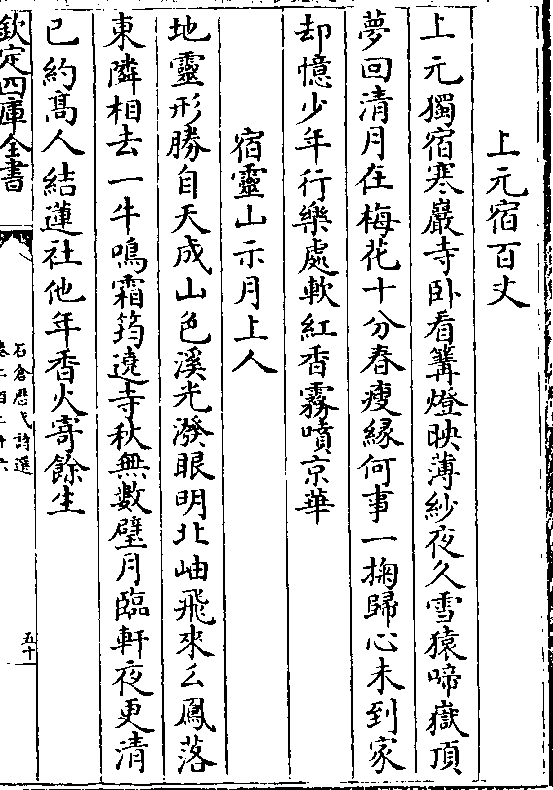 上元宿百丈
上元獨宿寒巖寺卧看篝燈映薄紗夜久雪猿啼嶽頂
夢回清月在梅花十分春瘦緣何事一掬歸心未到家
却憶少年行樂處軟紅香霧噴京華
宿靈山示月上人
地靈形勝自天成山色溪光潑眼明北岫飛來么鳳落
東隣相去一牛鳴霜筠遶寺秋無數璧月臨軒夜更清
已約髙人結蓮社他年香火寄餘生
欽定四庫全書
石倉歴代詩選
五十一